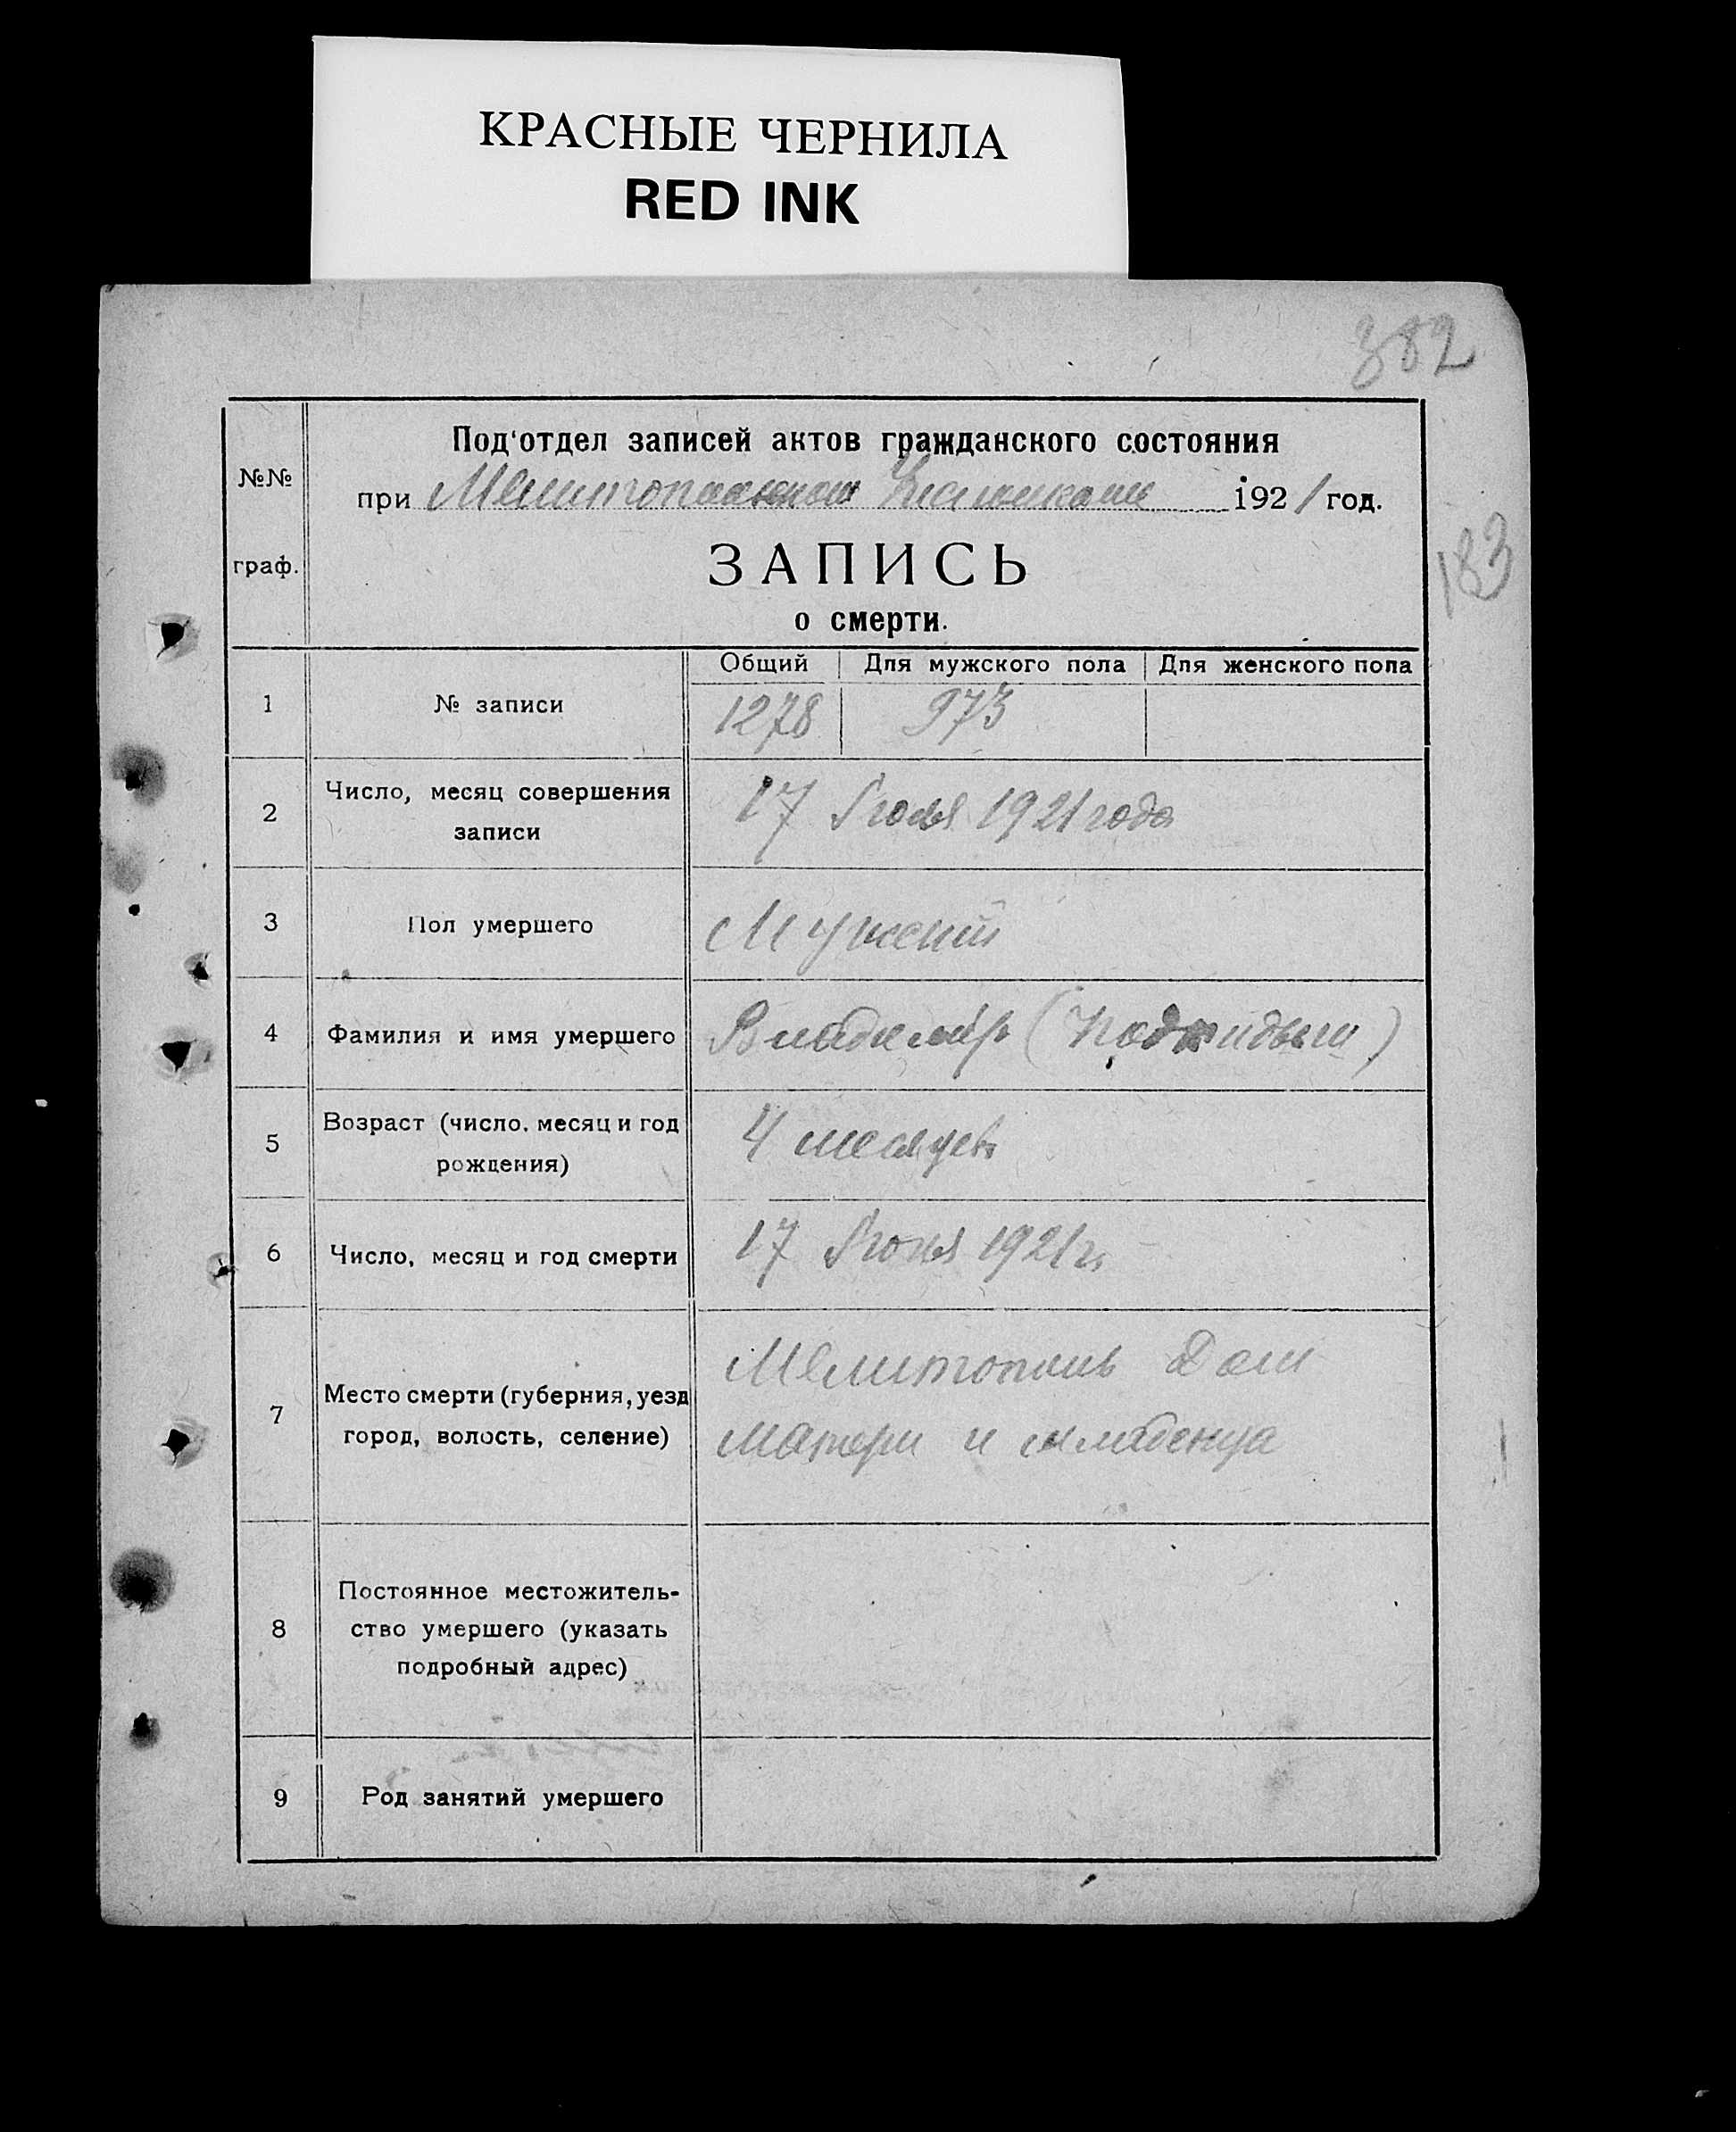 КРАСНЫЕ ЧЕРНИЛА
RED INK
382
Под'отдел записей актов гражданского состояния
№№
при Мелитопольском 1921 год.
183
граф.
ЗАПИСЬ
о смерти.
Общий Для мужского пола Для женского пола
1 № записи 1278 973
2 Число, месяц совершения
записи
17 Июля 1921 года
3 Пол умершего Мужский
4 Фамилия и имя умершего Владимір (Подкидыш)
5 Возраст (число, месяц и год
рождения)
4 месяцев
6 Число, месяц и год смерти 17 Июня 1921 г.
7 Место смерти (губерния, уезд
город, волость, селение)
Мелитополь Дом
Матери и младенца
8 Постоянное местожитель-
ство умершего (указать
подробный адрес)
9 Род занятий умершего